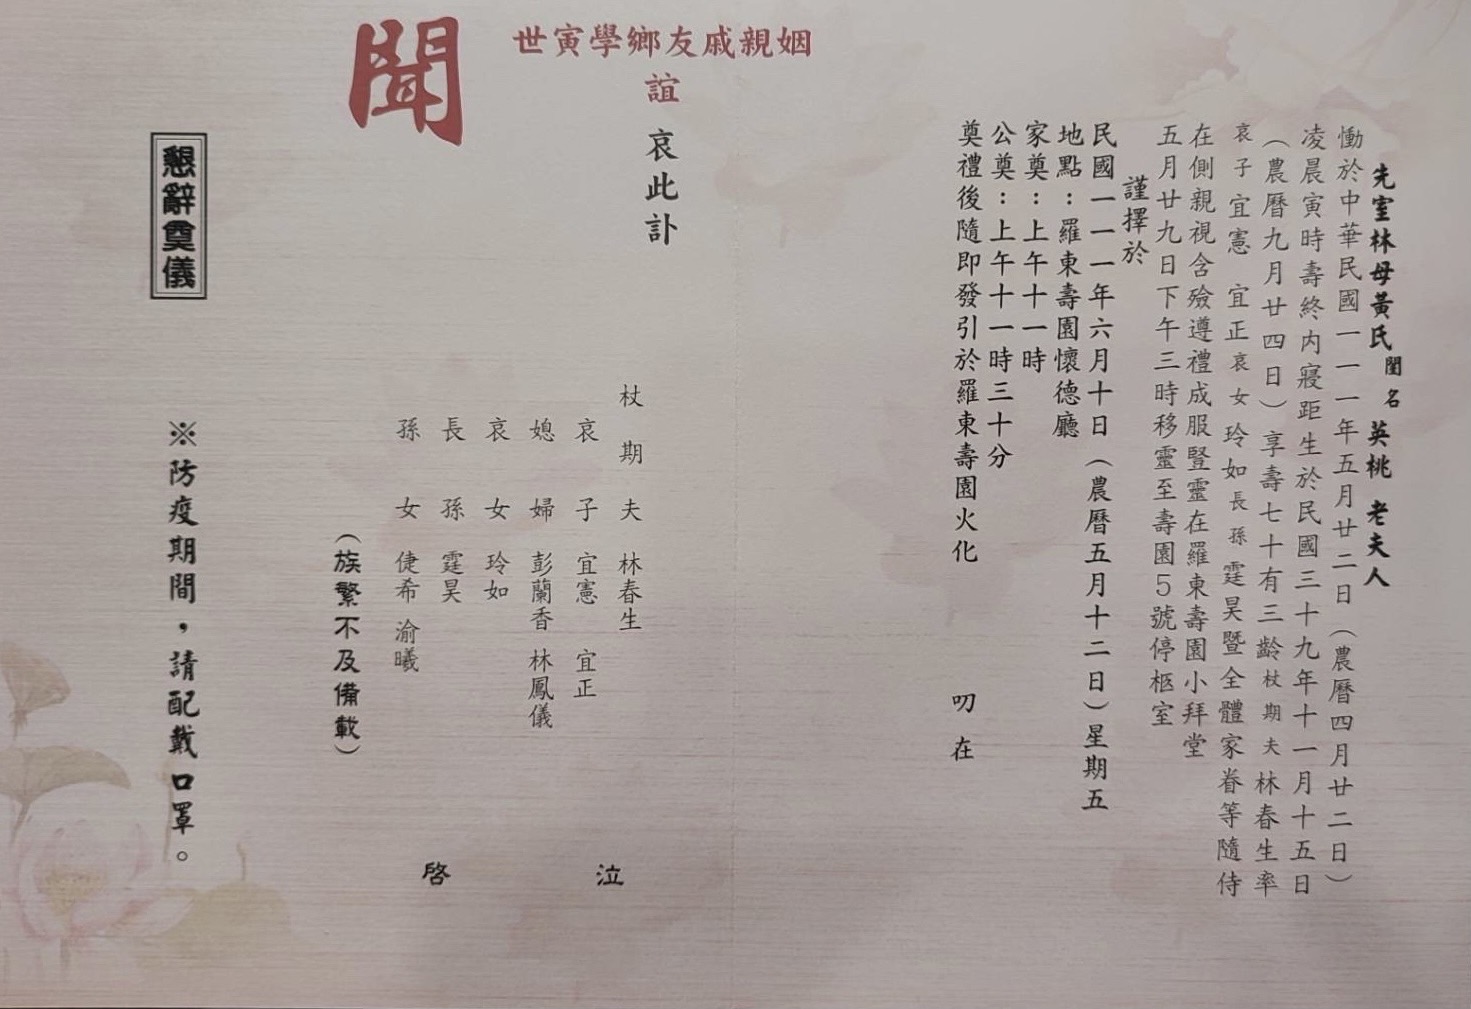 先室林母黃氏閨名英桃老夫人
慟於中華民國一一一年五月廿二日（農曆四月廿二日）
凌晨寅時壽終內寢距生於民國三十九年十一月十五日
（農曆九月廿四日）享壽七十有三齡杖期夫林春生率
哀子宜憲 宜正哀女玲如長孫霆昊暨全體家眷等隨侍
在側親視含殮遵禮成服豎靈在羅東壽園小拜堂
五月廿九日下午三時移靈至壽園5號停柩室
謹擇於
民國一一一年六月十日（農曆五月十二日）星期五
地點：羅東壽園懷德廳
家奠：上午十一時
公奠：上午十一時三十分
奠禮後隨即發引於羅東壽園火化 叨在
姻親戚友鄉學寅世
誼
哀此訃
聞
杖期夫 林春生
哀子 宜憲 宜正
媳婦 彭蘭香 林鳳儀
哀女 玲如
長孫 霆昊
孫女 倢希 渝曦
（族繁不及備載）
泣
啓
懇辭奠儀
※防疫期間，請配戴口罩。